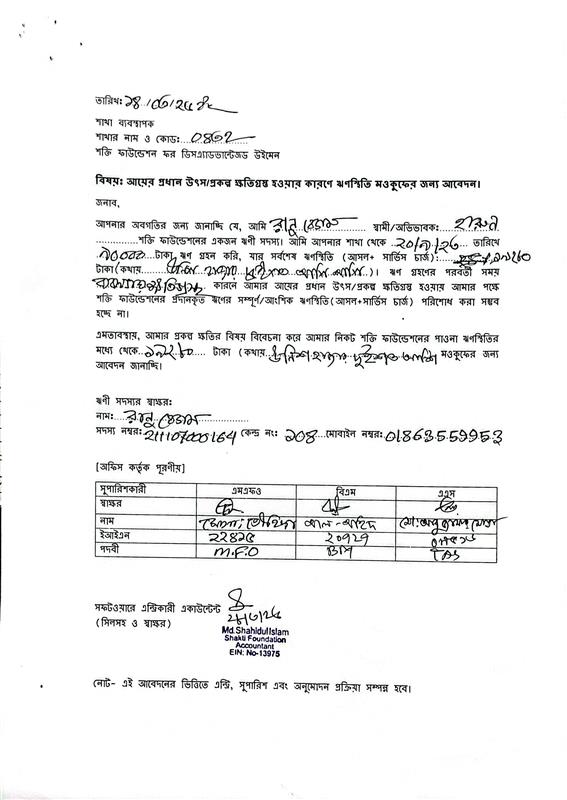 তারিখঃ
শাখা ব্যবস্থাপক
শাখার নাম ও কোডঃ....0462
শক্তি ফাউন্ডেশন ফর ডিসএ্যাডভান্টেজড উইমেন
বিষয়ঃ আয়ের প্রধান উৎস/প্রকল্প ক্ষতিগ্রস্থ হওয়ার কারণে ঋণস্থিতি মওকুফের জন্য আবেদন।
জনাব,
আপনার অবগতির জন্য জানাচ্ছি যে, আমি রানু বেগম স্বামী/অভিভাবকঃ
শক্তি ফাউন্ডেশনের একজন ঋণী সদস্য। আমি আপনার শাখা থেকে তারিখে
টাকা ঋণ গ্রহন করি, যার সর্বশেষ ঋণস্থিতি (আসল+ সার্ভিস চার্জ):
টাকা(কথায় )। ঋণ গ্রহণের পরবর্তী সময়
কারনে আমার আয়ের প্রধান উৎস/প্রকল্প ক্ষতিগ্রস্থ হওয়ায় আমার পক্ষে
শক্তি ফাউন্ডেশনের প্রদানকৃত ঋণের সম্পূর্ণ/আংশিক ঋণস্থিতি(আসল+সার্ভিস চার্জ) পরিশোধ করা সম্ভব
হচ্ছে না।
এমতাবস্থায়, আমার প্রকল্প ক্ষতির বিষয় বিবেচনা করে আমার নিকট শক্তি ফাউন্ডেশনের পাওনা ঋণস্থিতির
মধ্যে থেকে টাকা (কথায় উনিশ হাজার দুইশত আশি মওকুফের জন্য
আবেদন জানাচ্ছি।
ঋণী সদস্যর স্বাক্ষরঃ
নামঃ রানু বেগম
সদস্য নম্বরঃ 21107000164 কেন্দ্র নংঃ ১০৪ মোবাইল নম্বরঃ 01863559953
[অফিস কর্তৃক পূরণীয়]
সুপারিশকারী এমএফও বিএম এএস
স্বাক্ষর
নাম
ইআইএন 22825 20929
পদবী M.F.O BM TAS
সফটওয়ারে এন্ট্রিকারী একাউন্টেন্ট
(সিলসহ ও স্বাক্ষর)
Md.Shahidul Islam
Shakti Foundation
Accountant
EIN: No-13975
নোট- এই আবেদনের ভিত্তিতে এন্ট্রি, সুপারিশ এবং অনুমোদন প্রক্রিয়া সম্পন্ন হবে।